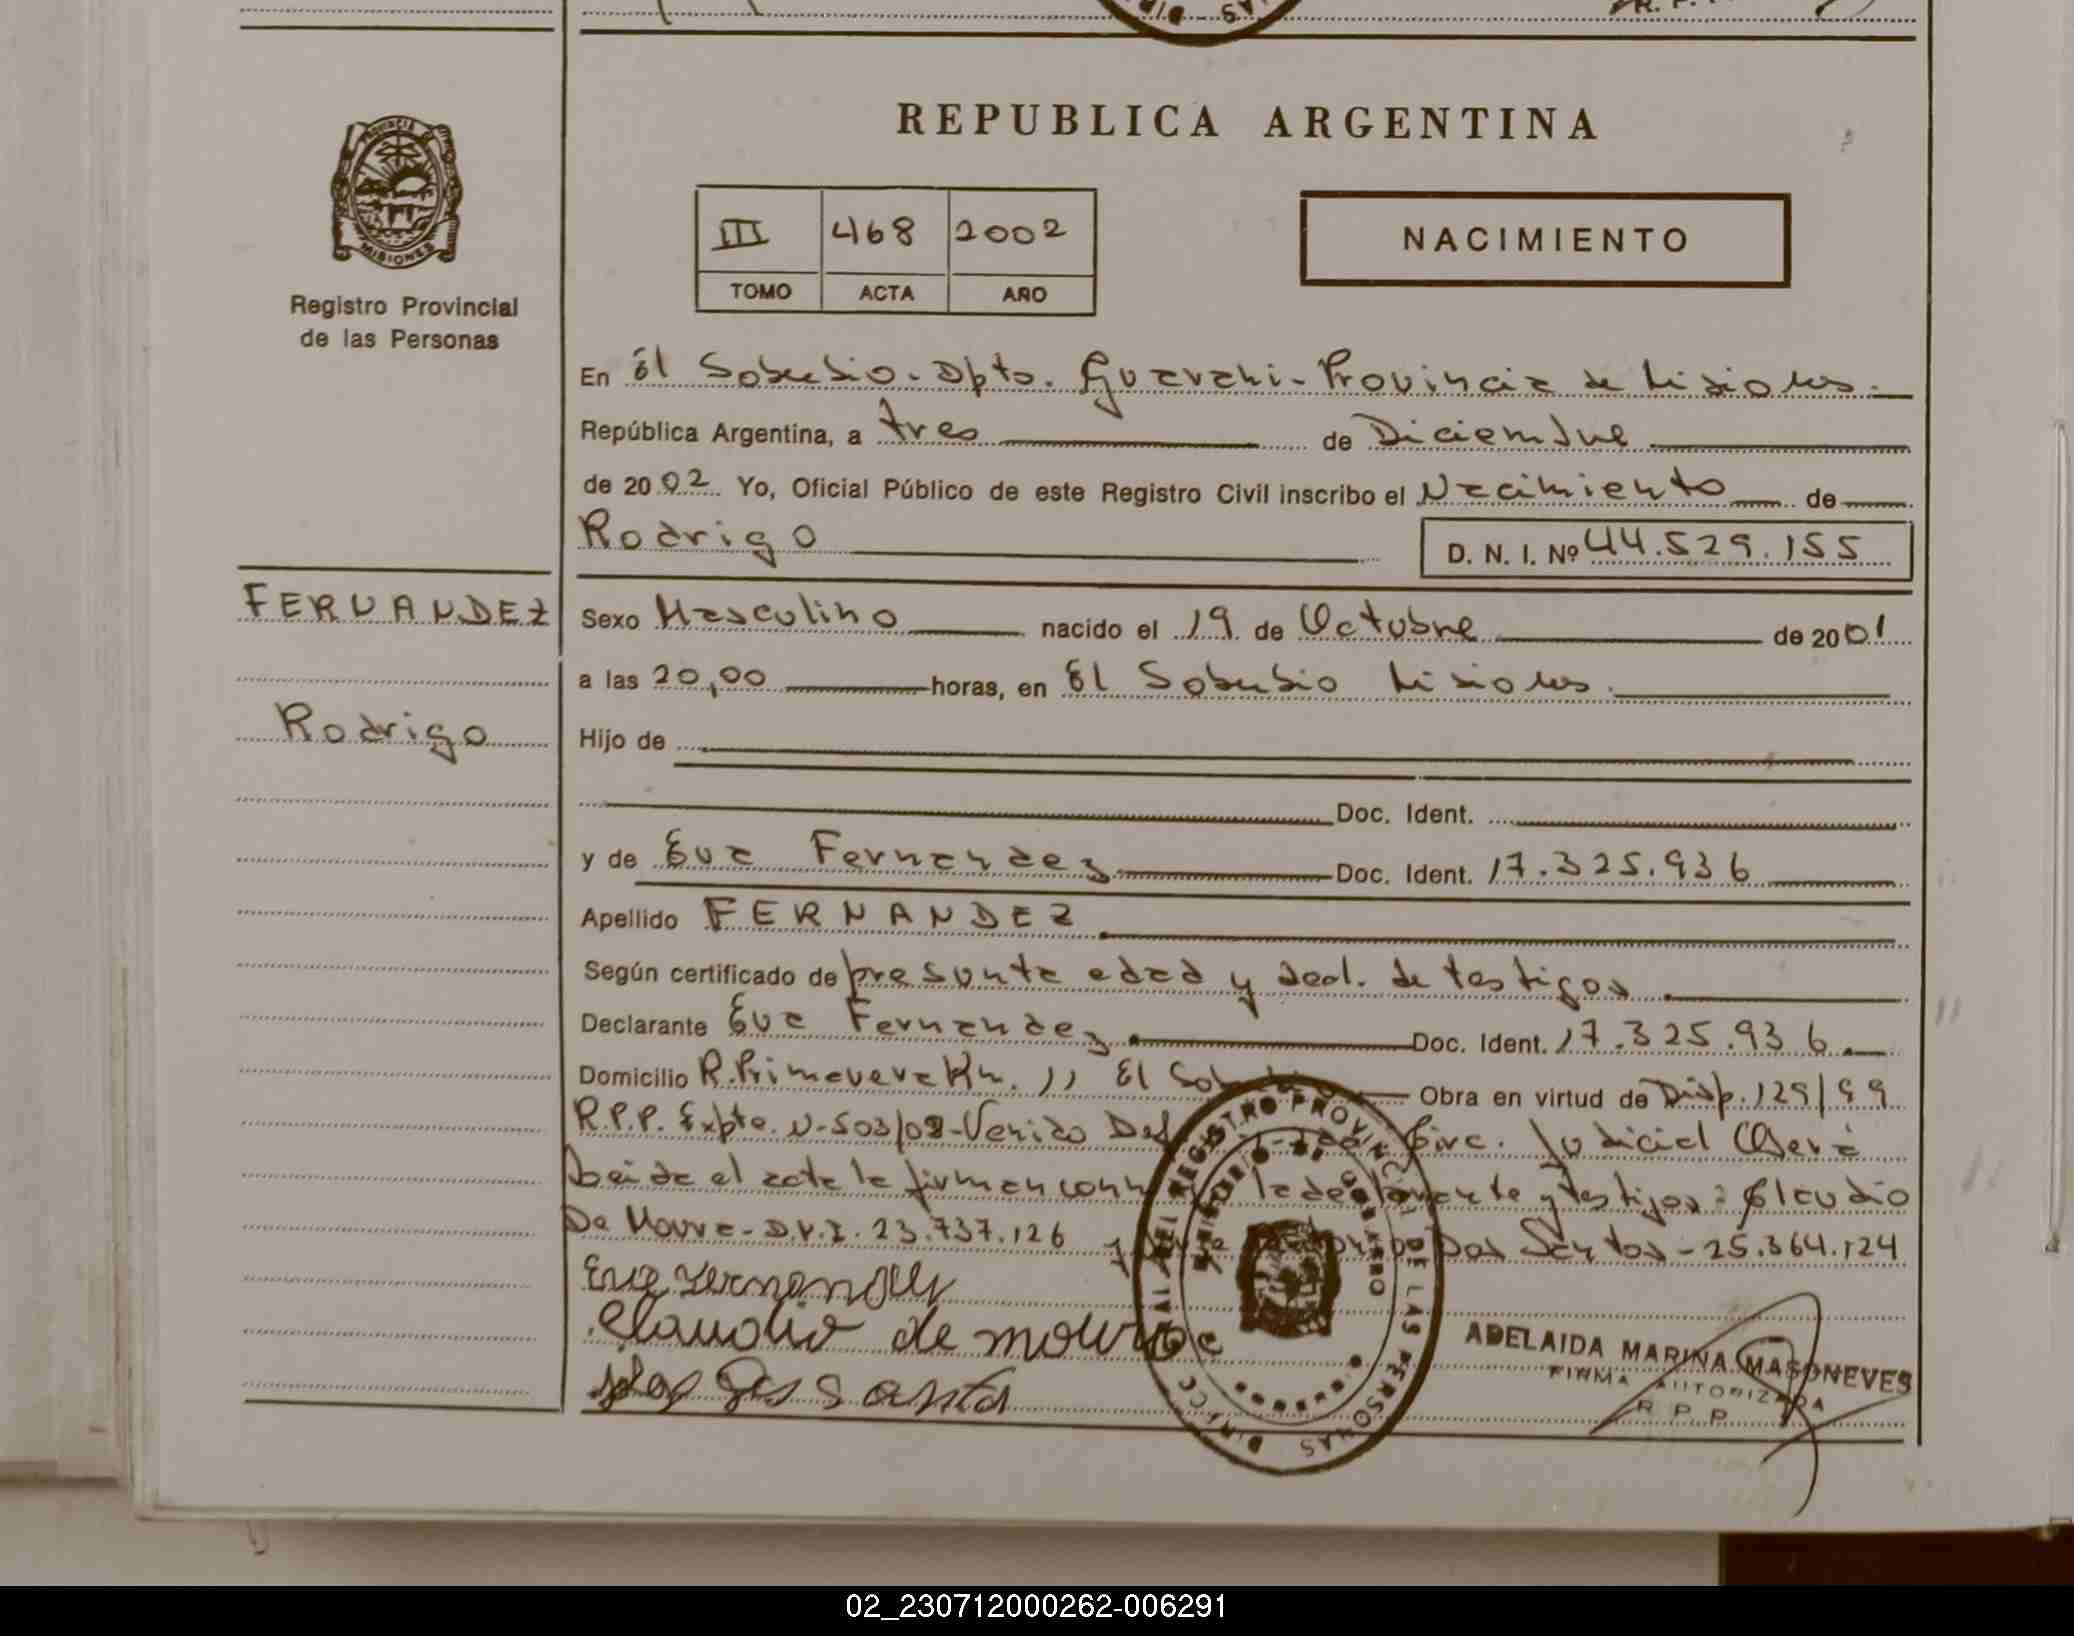 REPUBLICA ARGENTINA
PROVINCIA
MISIONES
Registro Provincial
de las Personas
III 468 2002
TOMO ACTA AÑO
NACIMIENTO
En El Soberbio - Dpto. Guarani - Provincia de Misiones.
República Argentina, a tres de Diciembre
de 2002 Yo, Oficial Público de este Registro Civil inscribo el Nacimiento de
Rodrigo D. N. I. Nº 44.529.155
FERNANDEZ
Rodrigo
Sexo Masculino nacido el 19 de Octubre de 2001
a las 20,00 horas, en El Soberbio Misiones.
Hijo de
Doc. Ident.
y de Eva Fernandez Doc. Ident. 17.325.936
Apellido FERNANDEZ
Según certificado de presunta edad y decl. de testigos
Declarante Eva Fernandez Doc. Ident. 17.325.936
Domicilio R. Primavera Km. 11 El Obra en virtud de Disp. 129/99
R.P.P. Expte. N-503/02 - Venido Def Circ. Judicial Oberá
Leida el acta la firman la declarante y testigos: Claudio
De Moura - D.N.I. 23.737.126 y Dos Santos - 25.364.124
Eva Fernandez
Claudio de moura
dos santos
REGISTRO PROVINCIAL DE LAS PERSONAS
ADELAIDA MARINA MASONEVES
FIRMA AUTORIZADA
R P P
02_230712000262-006291